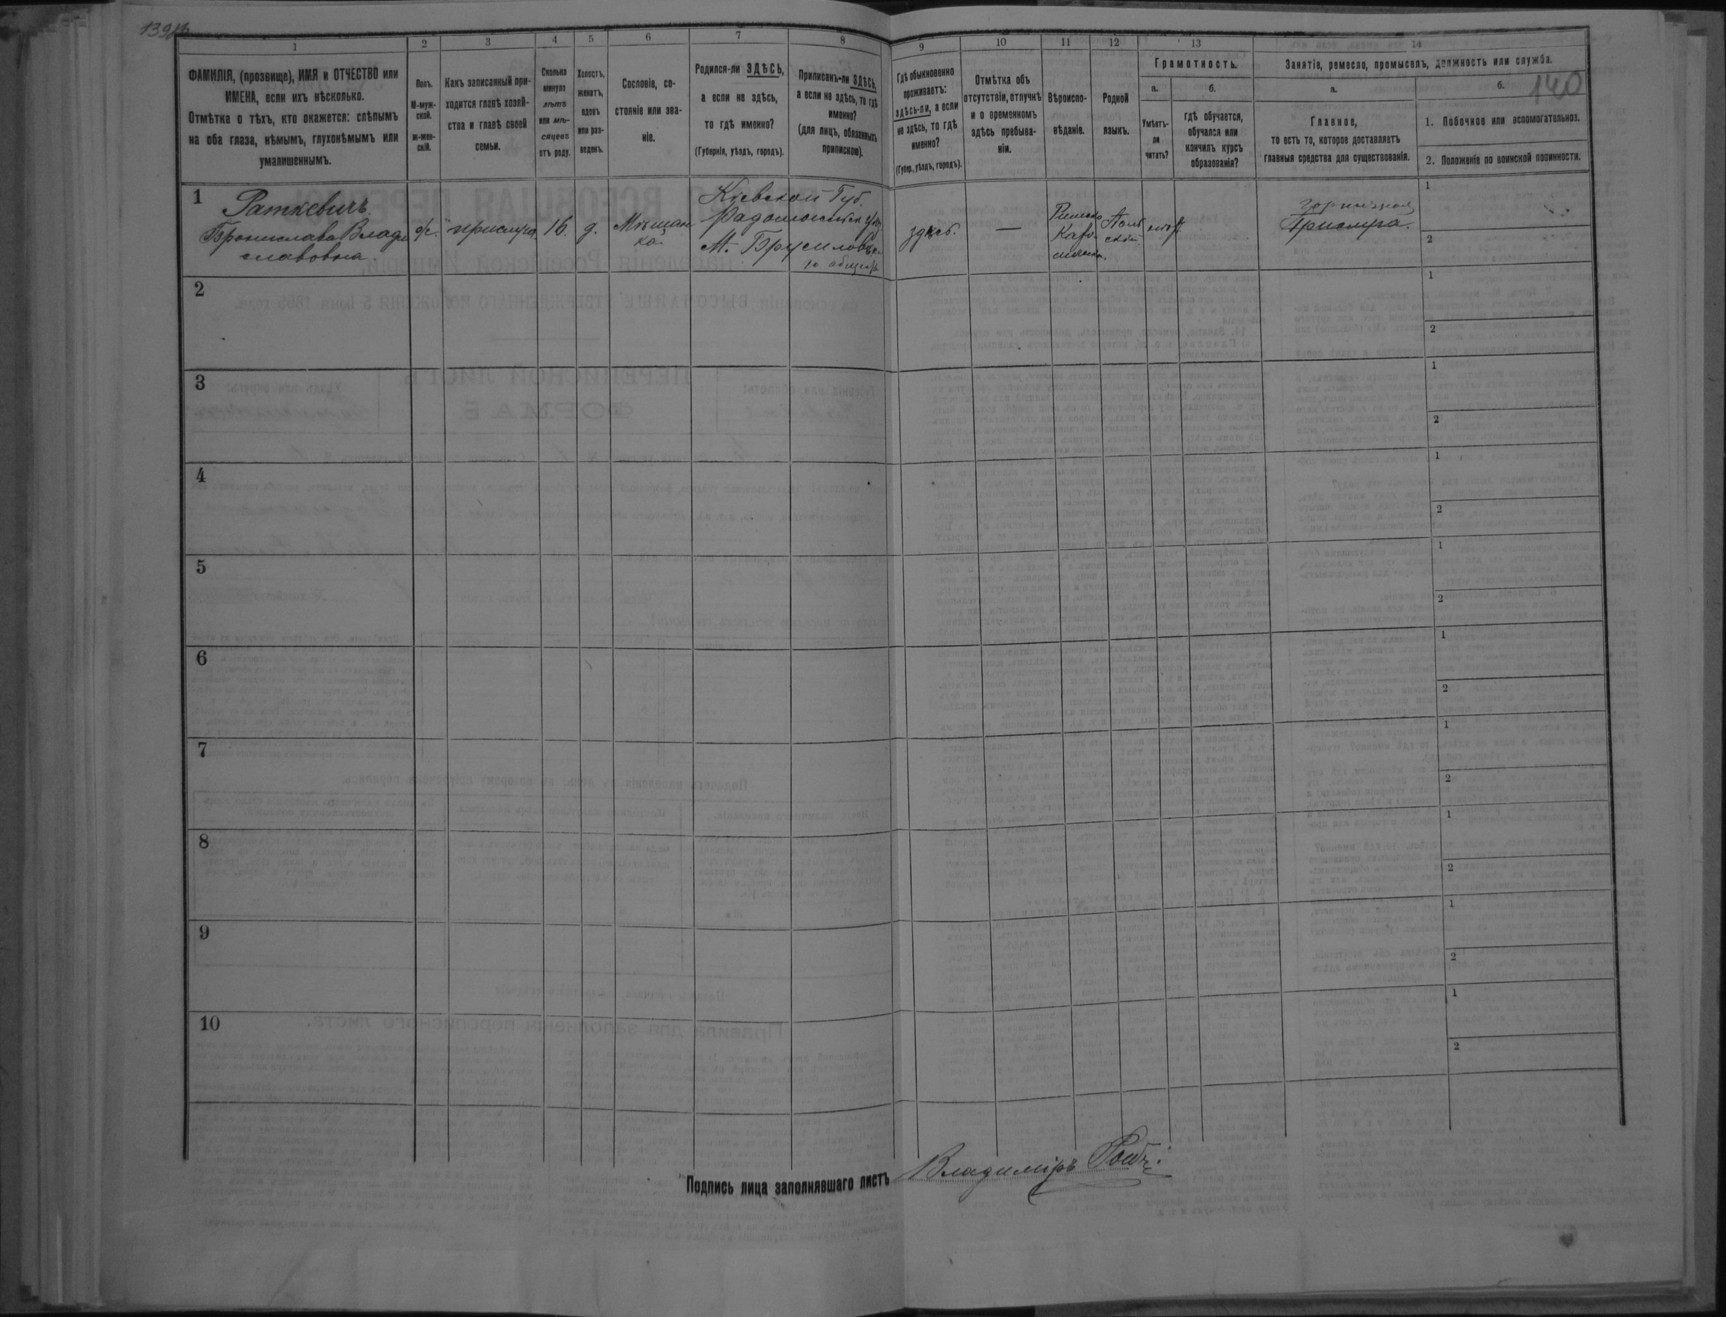 139 об
140
1 2 3 4 5 6 7 8 9 10 11 12 13 14
ФАМИЛІЯ, (прозвище), ИМЯ и ОТЧЕСТВО или
ИМЕНА, если ихъ нѣсколько.
Отмѣтка о тѣхъ, кто окажется: слѣпымъ
на оба глаза, нѣмымъ, глухонѣмымъ или
умалишеннымъ.
Полъ.
М-муж-
ской.
ж-жен-
скій.
Какъ записанный при-
ходится главѣ хозяй-
ства и главѣ своей
семьи.
Сколько
минуло
лѣтъ
или мѣ-
сяцевъ
отъ роду.
Холостъ,
женатъ,
вдовъ
или раз-
веденъ.
Сословіе, со-
стояніе или зва-
ніе.
Родился-ли ЗДѢСЬ,
а если не здѣсь,
то гдѣ именно?
(Губернія, уѣздъ, городъ).
Приписанъ-ли ЗДѢСЬ,
а если не здѣсь, то гдѣ
именно?
(для лицъ, обязанныхъ
припискою).
Гдѣ обыкновенно
проживаетъ:
здѣсь-ли, а если
не здѣсь, то гдѣ
именно?
(Губер., уѣздъ, городъ).
Отмѣтка объ
отсутствіи, отлучкѣ
и о временномъ
здѣсь пребыва-
ніи.
Вѣроиспо-
вѣданіе.
Родной
языкъ.
Грамотность.
а.
Умѣетъ-
ли
читать?
б.
гдѣ обучается,
обучался или
кончилъ курсъ
образованія?
Занятіе, ремесло, промыселъ, должность или служба.
а.
Главное,
то есть то, которое доставляетъ
главныя средства для существованія.
б.
1. Побочное или вспомогательное.
2. Положеніе по воинской повинности.
1
Раткевичъ
Бронислава Влади
славовна.
ж.
прислуга
16.
д.
Мѣщан
ка.
Кіевской Губ.
Радомысльск у.
М. Брусиловск
го общест
здѣсь.
—
Римско
Като-
личка.
Поль
скій
нѣтъ
горничная
Прислуга.
1
2
2
1
2
3
1
2
4
1
2
5
1
2
6
1
2
7
1
2
8
1
2
9
1
2
10
1
2
Подпись лица заполнявшаго листъ Владиміръ